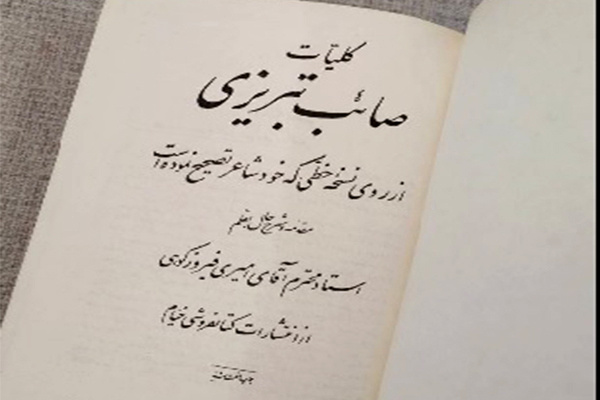 کلیات
صائب تبریزی
از روی نسخه خطی که خود شاعر تصحیح نموده است
مقدمه و شرح حال بقلم
استاد محترم آقای امیری فیروزکوهی
از انتشارات کتابفروشی خیام